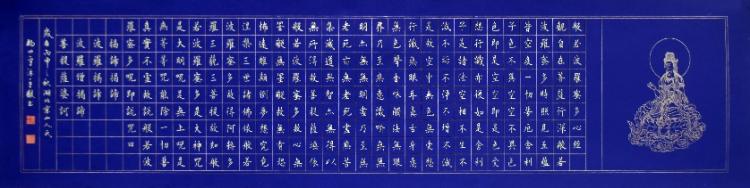 般若波羅蜜多心經
觀自在菩薩行深般若
波羅蜜多時照見五蘊
皆空度一切苦厄舍利
子色不異空空不異色
色即是空空即是色受
想行識亦復如是舍利
子是諸法空相不生不
滅不垢不淨不增不減
是故空中無色無受想
行識無眼耳鼻舌身意
無色聲香味觸法無眼
界乃至無意識界無無
明亦無無明盡乃至無
老死亦無老死盡無苦
集滅道無智亦無得以
無所得故菩提薩埵依
般若波羅蜜多故心無
罣礙無罣礙故無有恐
怖遠離顛倒夢想究竟
涅槃三世諸佛依般若
波羅蜜多故得阿耨多
羅三藐三菩提故知般
若波羅蜜多是大神咒
是大明咒是無上咒是
無等等咒能除一切苦
真實不虛故說般若波
羅蜜多咒即說咒曰
揭諦揭諦
波羅揭諦
波羅僧揭諦
菩提薩婆訶
歲在丙申之秋湖北京山人氏